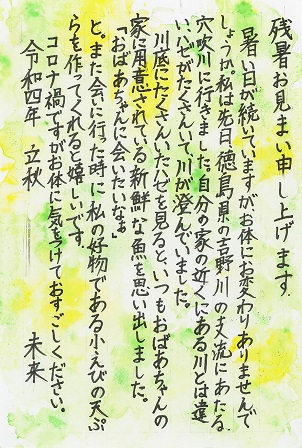 残暑お見まい申し上げます
暑い日が続いていますがお体にお変わりありませんで
しょうか。私は先日、徳島県の吉野川の支流にあたる
穴吹川に行きました。自分の家の近くにある川とは違
い、ハゼがたくさんいて、川が澄んでいました。
川底にたくさんいたハゼを見ると、いつもおばあちゃんの
家に用意されている新鮮な魚を思い出しました。
「おばあちゃんに会いたいなぁ」
と。また会いに行った時に私の好物である小えびの天ぷ
らを作ってくれると嬉しいです。
コロナ禍ですがお体に気をつけておすごしください。
令和四年 立秋
未来